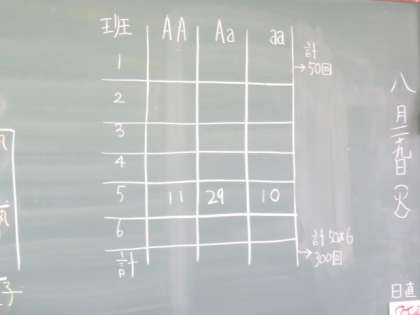 班 AA Aa aa
1 計
→50回
2
3
4
5 11 29 10
6 計50×6
計 →300回
八月二十九日(火)
日直
子